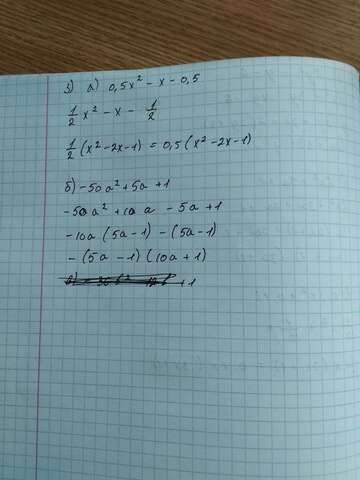 3) а) 0,5x² - x - 0,5
1/2 x² - x - 1/2
1/2 (x² - 2x - 1) = 0,5 (x² - 2x - 1)
б) -50a² + 5a + 1
-50a² + 10a - 5a + 1
-10a (5a - 1) - (5a - 1)
- (5a - 1) (10a + 1)
+ 1